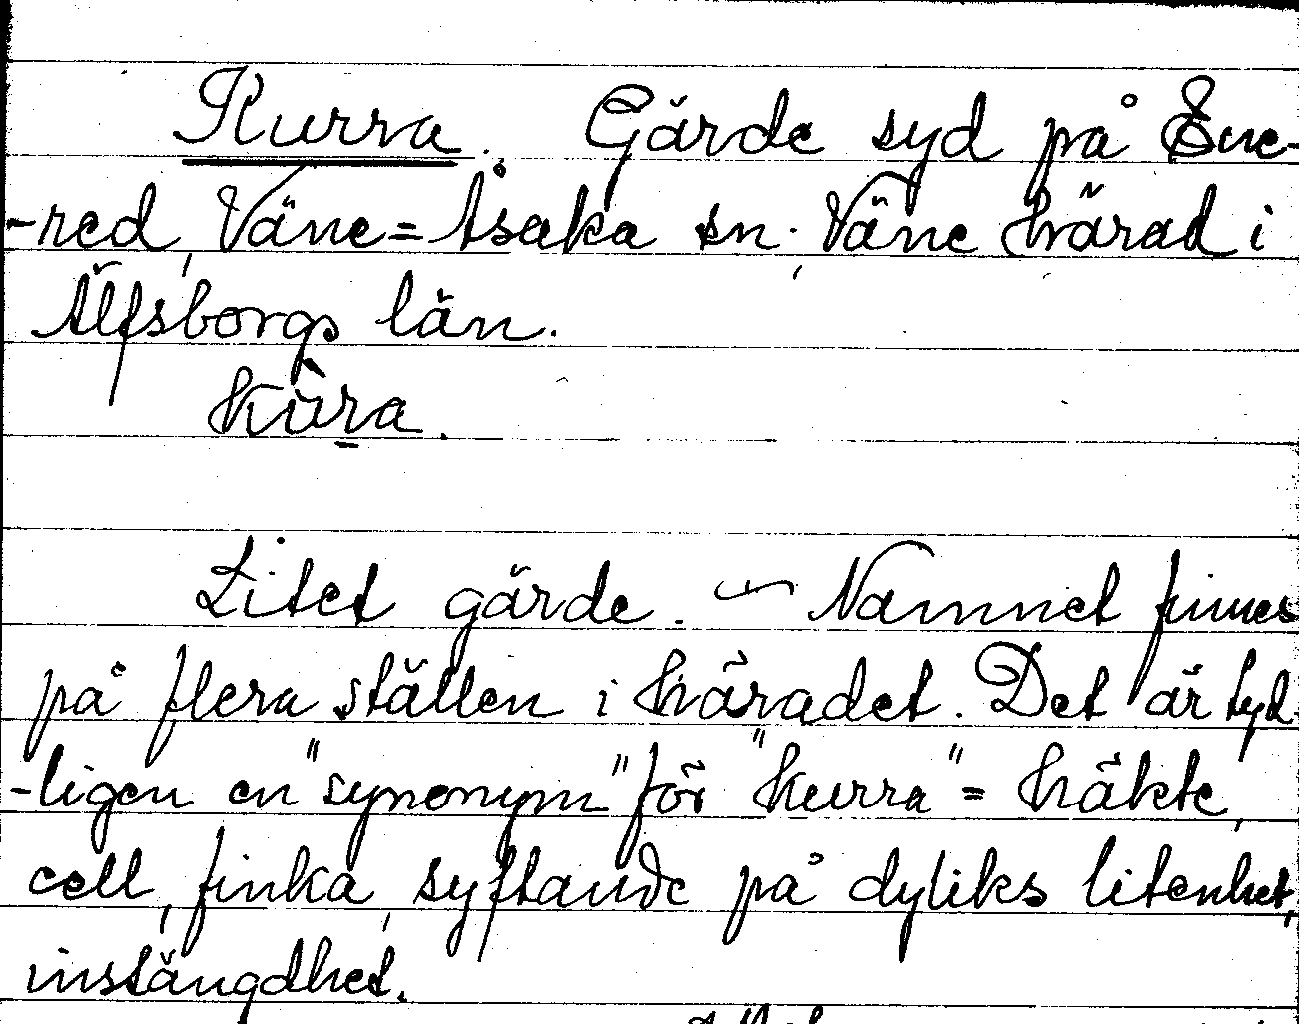 Kurra. Gärde syd på Ene-
-red, Väne=Åsaka sn. Väne härad i
Älfsborgs län.
kùra.
Litet gärde. — Namnet finnes
på flera ställen i häradet. Det är tyd-
-ligen en "synonym" för "kurra" = häkte,
cell, finka, syftande på dyliks litenhet,
instängdhet.